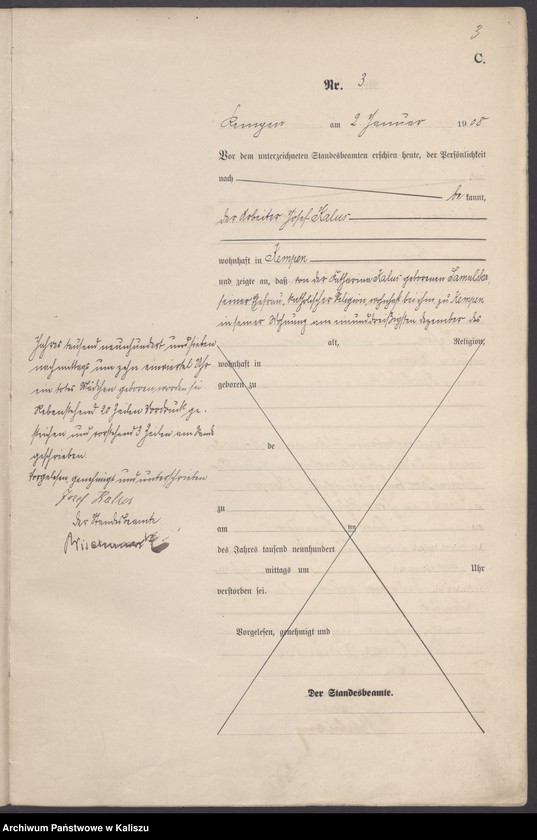 3
C.
Nr. 3.
Kempen am 2. Januar 1908
Vor dem unterzeichneten Standesbeamten erschien heute, der Persönlichkeit
nach
bekannt,
der Arbeiter Josef Kalus
wohnhaft in Kempen
und zeigte an, daß von der Katharina Kalus geborenen
seiner Ehefrau, katholischer Religion, wohnhaft bei ihm zu Kempen
in seiner Wohnung am einunddreißigsten Dezember des
Jahres tausend neunhundert und sieben
nachmittags um zehn einviertel Uhr
ein totes Mädchen geboren worden sei.
Nebenstehend 20 Zeilen Vordruck ge-
strichen und vorstehend 3 Zeilen am Rande
geschrieben.
Vorgelesen, genehmigt und unterschrieben
Josef Kalus
Der Standesbeamte
alt, Religion,
wohnhaft in
geboren zu
de
zu
am ten
des Jahres tausend neunhundert
mittags um Uhr
verstorben sei.
Vorgelesen, genehmigt und
Der Standesbeamte.
Archiwum Państwowe w Kaliszu